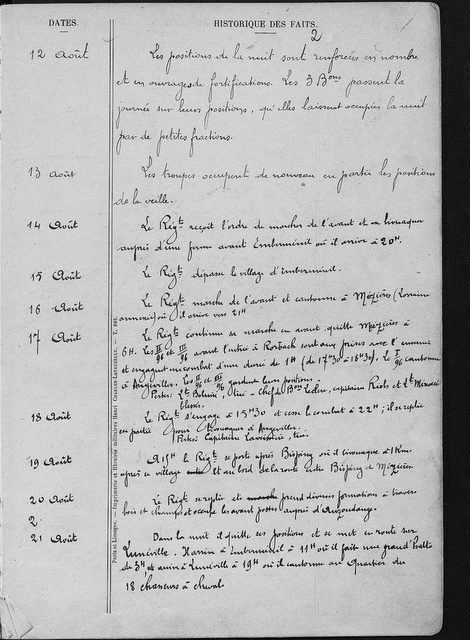 DATES.
HISTORIQUE DES FAITS.
2
12 Août
Les positions de la nuit sont renforcées en nombre
et en ouvrages de fortifications. Les 3 Bons passent la
journée sur leurs positions, qu'elles laissent occupées la nuit
par de petites fractions.
13 Août
Les troupes occupent de nouveau en partie les positions
de la veille.
14 Août
Le Régt reçoit l'ordre de marcher de l'avant et va bivouaquer
auprès d'une ferme avant Emberménil où il arrive à 20H.
15 Août
Le Régt dépasse le village d'Emberménil.
16 Août
Le Régt marche de l'avant et cantonne à Mézières (Lorraine
annexée) où il arrive vers 21H
17 Août
Le Régt continue sa marche en avant, quitte Mézières à
6H. Les II/96 et III/96 avant l'entrée à Rorbach sont aux prises avec l'ennemi
et engagent un combat d'une durée de 1H (de 17H30 à 18H30). Le I/96 cantonne
à Angviller. Les II/96 et III/96 gardent leurs positions.
Pertes: Lt , tué - chef de Bon , capitaine , Lt
blessés.
18 Août
Le Régt s'engage à 15H30 et cesse le combat à 22H; il se replie
en partie pour bivouaquer à Angviller.
Pertes: Capitaine , tué.
19 Août
A 15H le Régt se porte après Bisping où il bivouaque à 1Km.
après ce village et au bord de la route entre Bisping et Mézières
20 Août
Le Régt se replie et prend diverses formations à travers
bois et champs et occupe les avant postes auprès d'Azoudange.
2
21 Août
Dans la nuit il quitte ses positions et se met en route sur
Lunéville. Il arrive à Emberménil à 11H où il fait une grand'halte
de 3H, et arrive à Lunéville à 19H où il cantonne au Quartier du
18 chasseurs à cheval
Paris et Limoges. — Imprimerie et librairie militaires Henri CHARLES-LAVAUZELLE. —